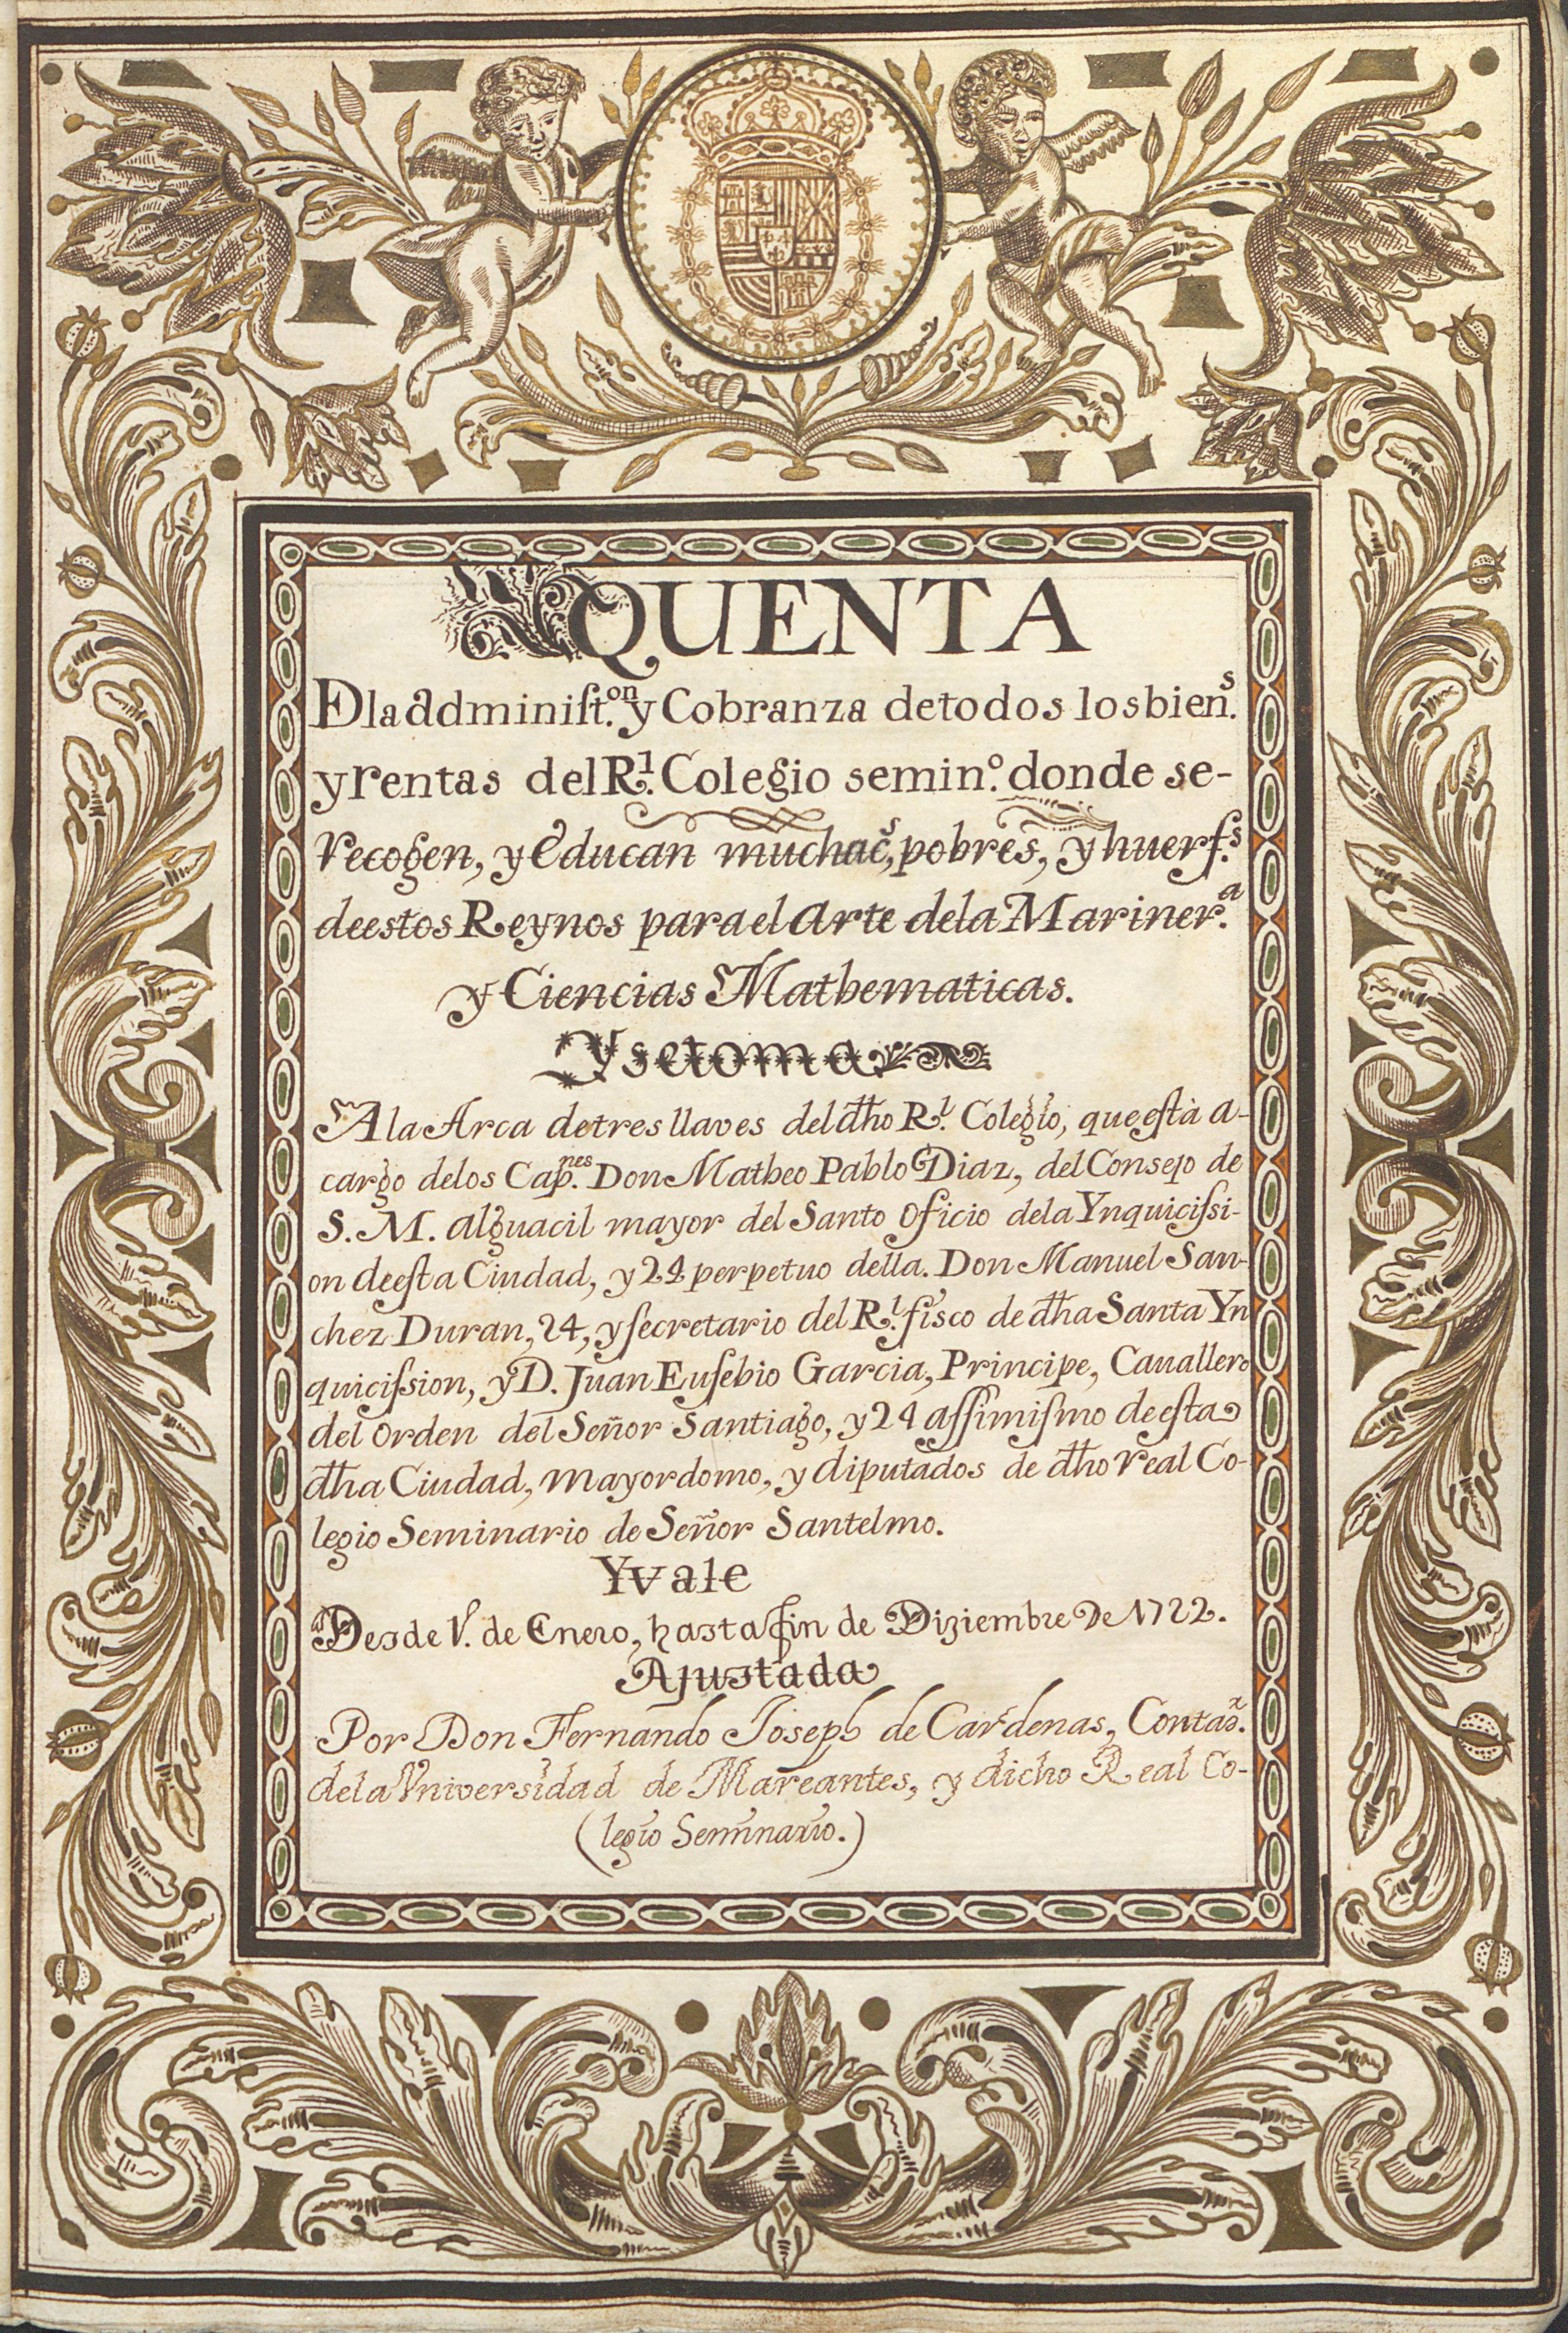 QUENTA
D la addminist.on y Cobranza de todos los bien.s
y rentas del R.l Colegio semin.o donde se-
recogen, y educan muchac.s, pobres, y huerf.s
de estos Reynos para el arte de la Mariner.a
y Ciencias Mathematicas.
Y se toma
A la Arca de tres llaves del dho R.l Colegio, que està a-
cargo de los Cap.nes Don Matheo Pablo Diaz, del Consejo de
S. M. alguacil mayor del Santo Oficio de la Ynquicissi-
on de esta Ciudad, y 24 perpetuo della. Don Manuel San-
chez Duran, 24, y secretario del R.l fisco de dha Santa Yn
quicission, y D. Juan Eusebio Garcia, Principe, Cauallero
del Orden del Señor Santiago, y 24 assimismo de esta
dha Ciudad, Mayordomo, y diputados de dho real Co-
legio Seminario de Señor Santelmo.
Y vale
Desde 1.o de Enero, hasta fin de Diziembre de 1722.
Ajustada
Por Don Fernando Joseph de Cardenas, Contad.r
de la Vniversidad de Mareantes, y dicho Real Co-
(legio Seminario.)